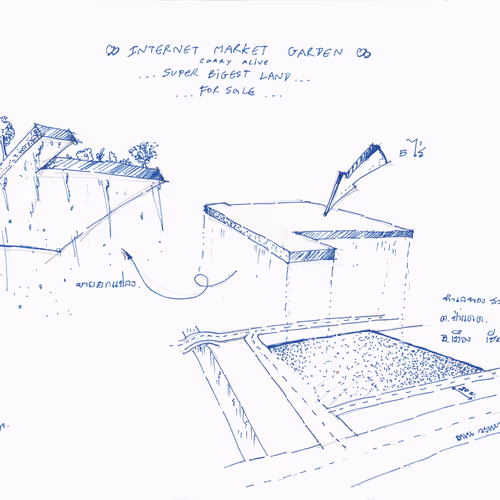 INTERNET MARKET GARDEN
CARRY ALIVE
... SUPER BIGEST LAND ...
... FOR SALE ...
5 ไร่
ขายยกแปลง.
ทำเลทอง
ต.ป่าแดด.
อ.เมือง
ถนน